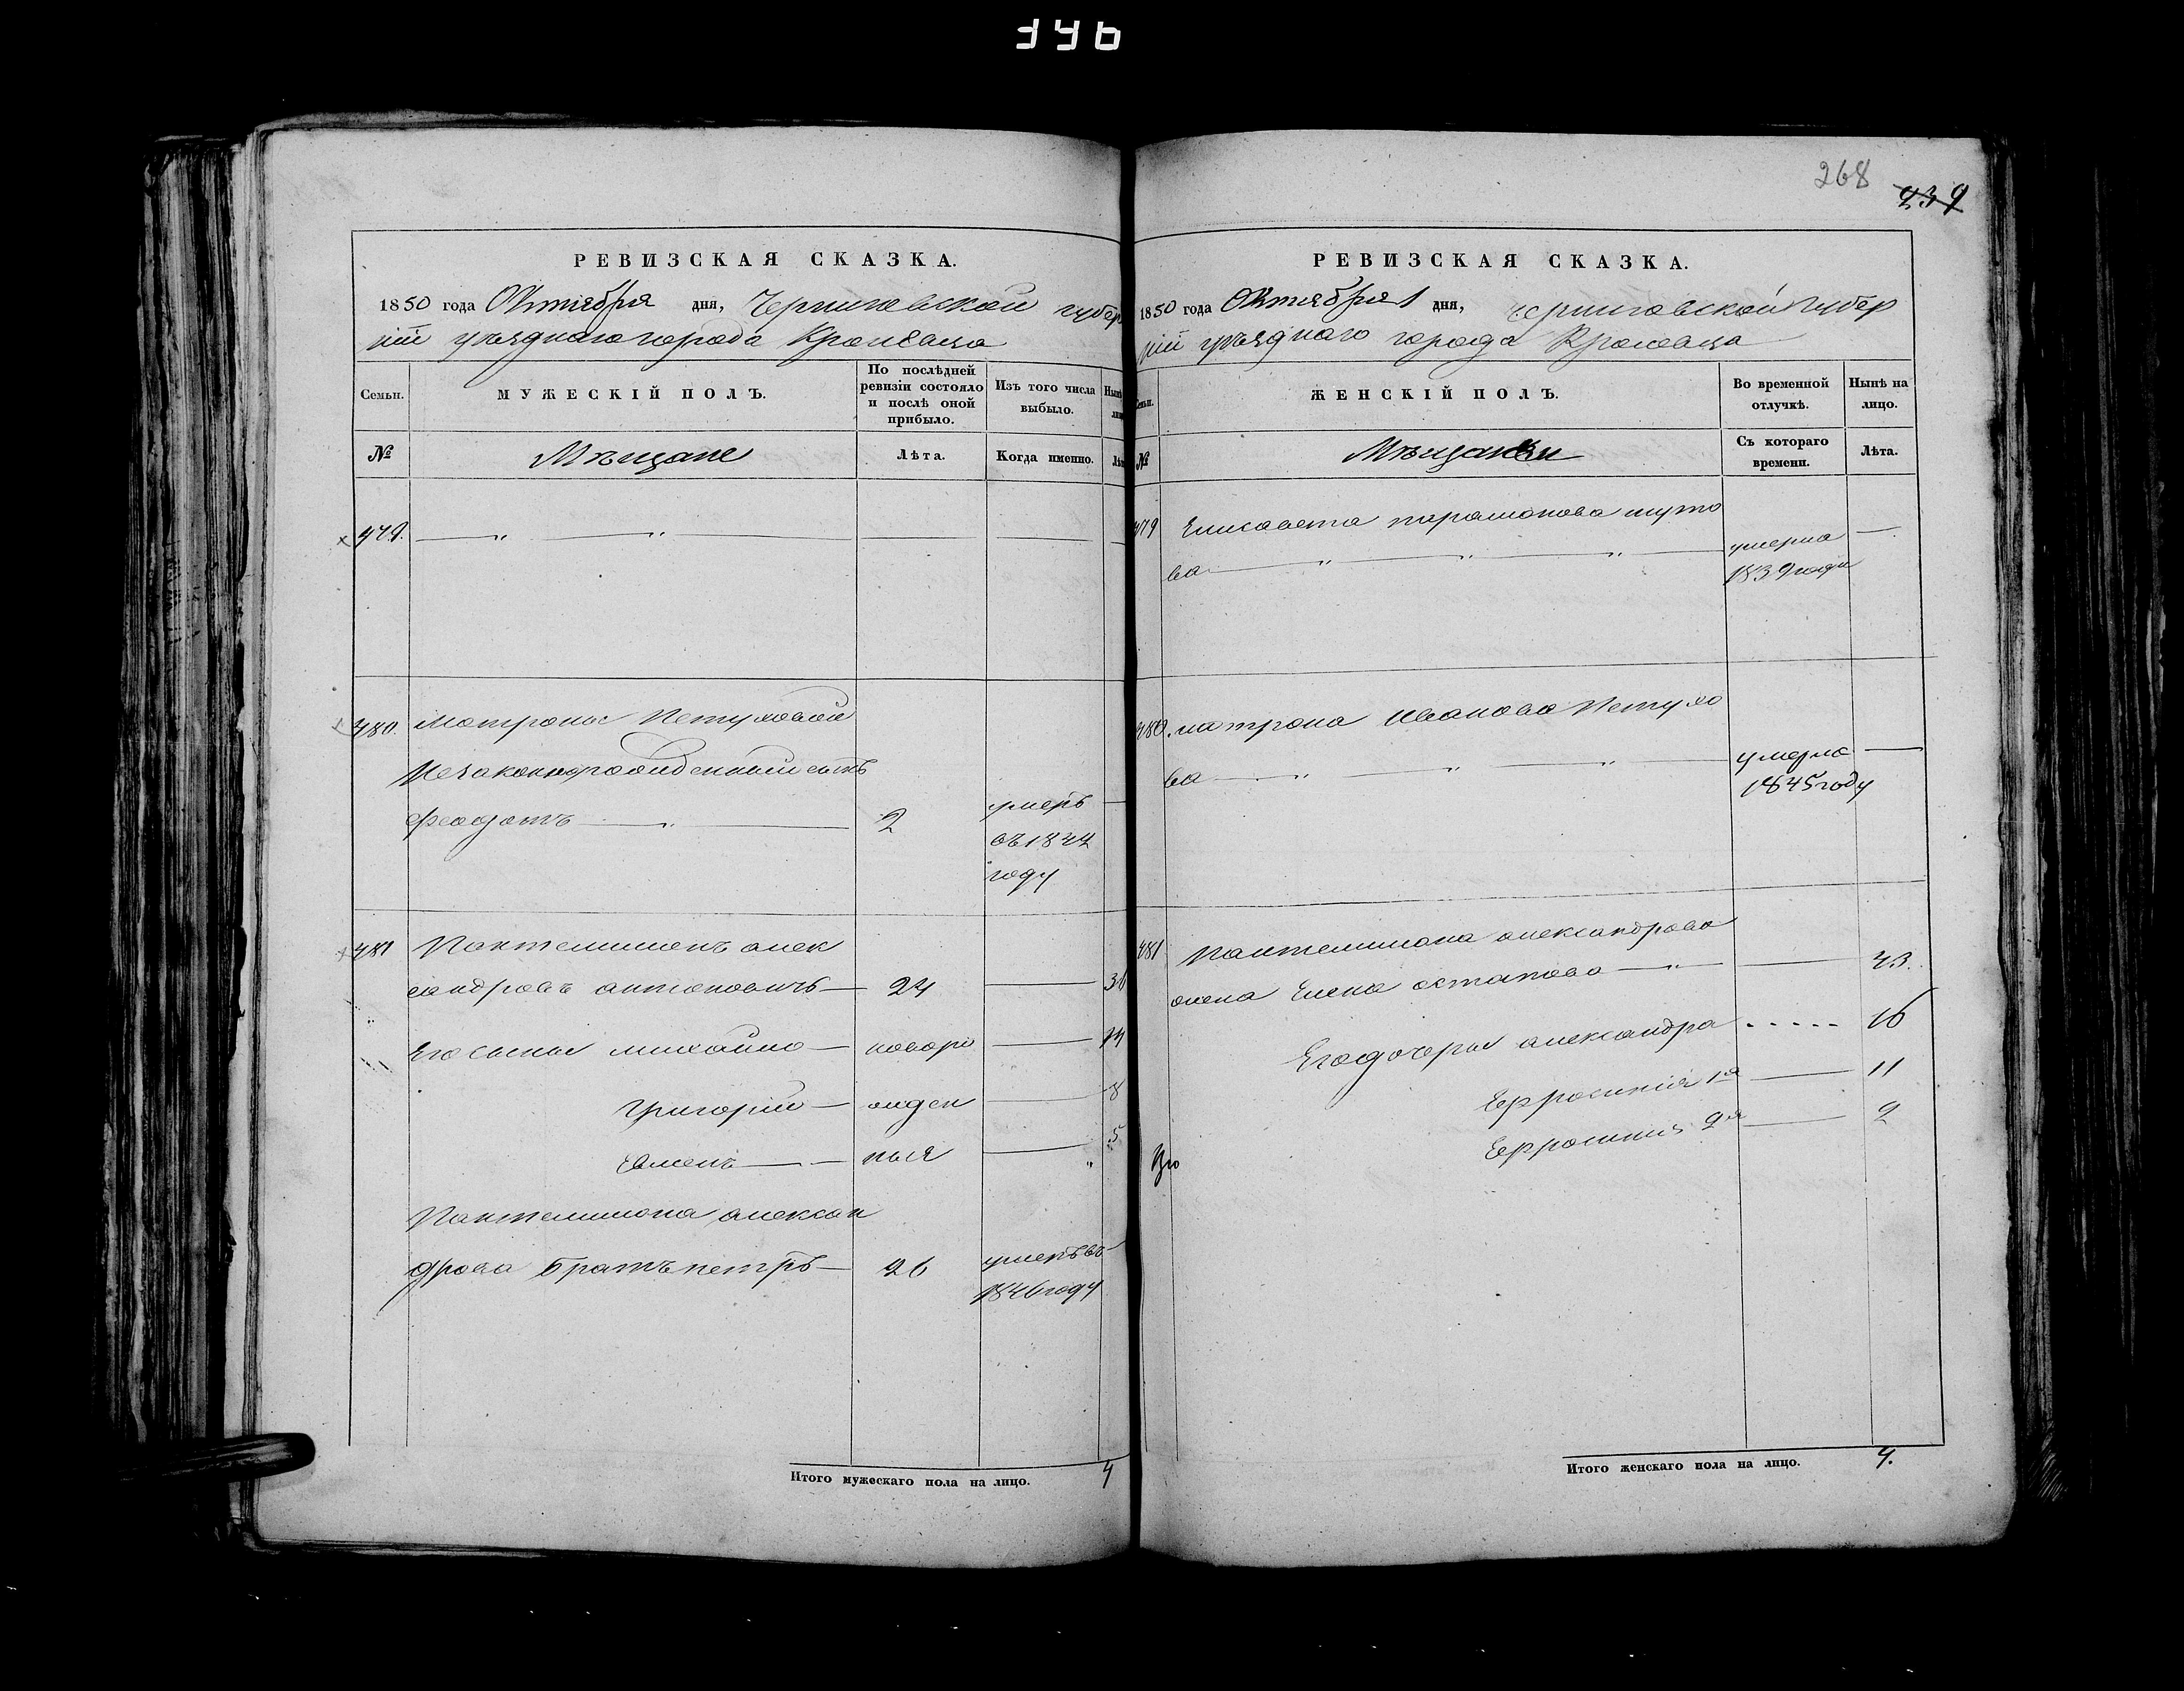 346
РЕВИЗСКАЯ СКАЗКА.
1850 года Октября дня, Черниговской губер
ніи уѣзднаго города Кролевца
Семьи.
МУЖЕСКІЙ ПОЛЪ.
По послѣдней ревизіи состояло и послѣ оной прибыло.
Изъ того числа выбыло.
№
Мѣщане
Лѣта.
Когда именно.
479.
480. Матроны Петуховой
Незаконнорожденный сынъ
Феодотъ 2 умеръ
въ 1844
году
481 Пантелимонъ алек
сандровъ антоновичъ 24 36
Его сыны михайло новоро 14
Григорий жден 8
Семенъ ныя 5
Пантелимона алексан
дрова братъ петръ 26 умеръ въ
1846 году
Итого мужескаго пола на лицо. 4
268
439
РЕВИЗСКАЯ СКАЗКА.
1850 года Октября 1 дня, Черниговской губер
ніи уѣзднаго города Кролевца
Семьи.
ЖЕНСКІЙ ПОЛЪ.
Во временной отлучкѣ.
Нынѣ на лицо.
№
Мѣщанки
Съ котораго времени.
Лѣта.
479 Елисавета парамонова шуто
ва умерла
1839 года
480. матрона Иванова Петухо
ва умерла
1845 году
481 Пантелимона александрова
жена Елена остапова 43.
Его дочеры александра 16
Ефросиния 1я 11
Ефросиния 2я 2
Итого женскаго пола на лицо. 4.